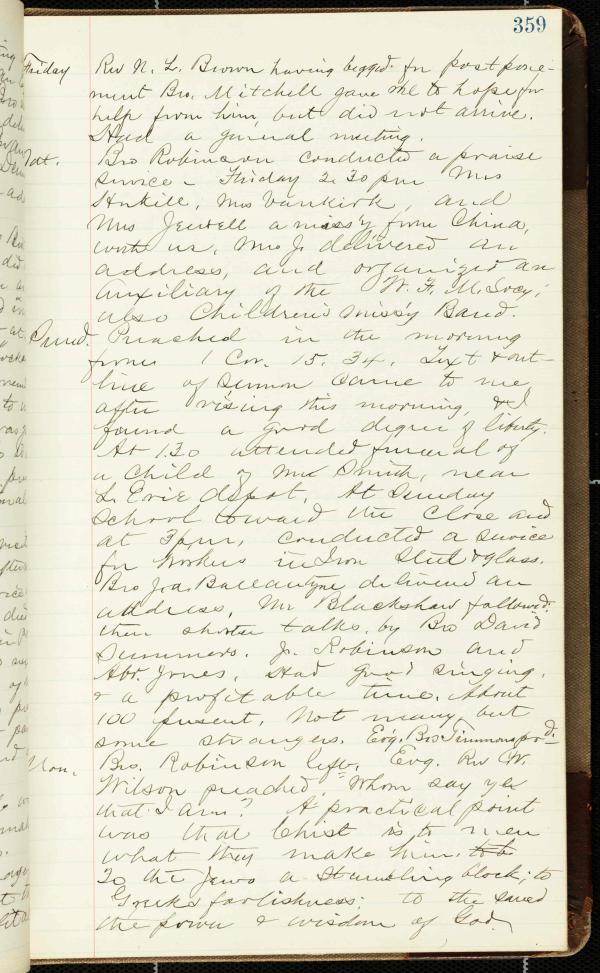 359
Friday Rev N. L. Brown having begged for postpone-
ment Bro. Mitchell gave me to hope for
help from him, but did not arrive.
Had a general meeting.
Sat. Bro Robinson conducted a praise
service - Friday 2.30 pm Mrs
Mrs Vankirk, and
Mrs Jewell a miss'y from China,
with us, Mrs J. delivered an
address, and organized an
Auxiliary of the W. F. M. Socy;
also Children's miss'y Band.
Preached in the morning
from 1 Cor. 15. 34. Text & out-
line of sermon came to me
after rising this morning, & I
found a good degree of liberty.
At 1.30 attended funeral of
a child of Mr Smith, near
L. Erie depot. At Sunday
School toward the close and
at 3 pm, conducted a service
for Workers in Iron Steel & glass.
Bro Jos. Ballantyne delivered an
address, Mr Blackshaw followed.
then shorter talks, by Bro David
Summers. Jr. Robinson and
Abr. Jones, Had good singing,
& a profitable time. About
100 present. Not many, but
some strangers. Ev'g. Bro Timmons
Mon. Bro. Robinson left. Evg. Rev W.
Wilson preached, "Whom say ye
that I am"? A practical point
was that Christ is to men
what they make him. to b
To the Jews a stumbling block; to
Greeks foolishness; to the saved
the power & wisdom of God.